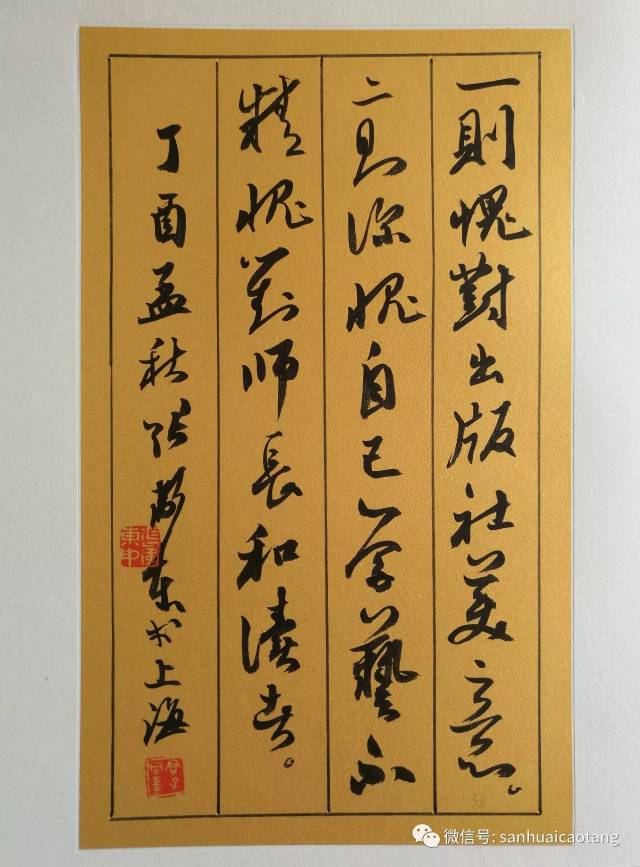 一則愧對出版社美意。
二则深愧自己学藝不
精愧对师長和读者。
丁酉孟秋张东上海
微信号: sanhuaicaotang